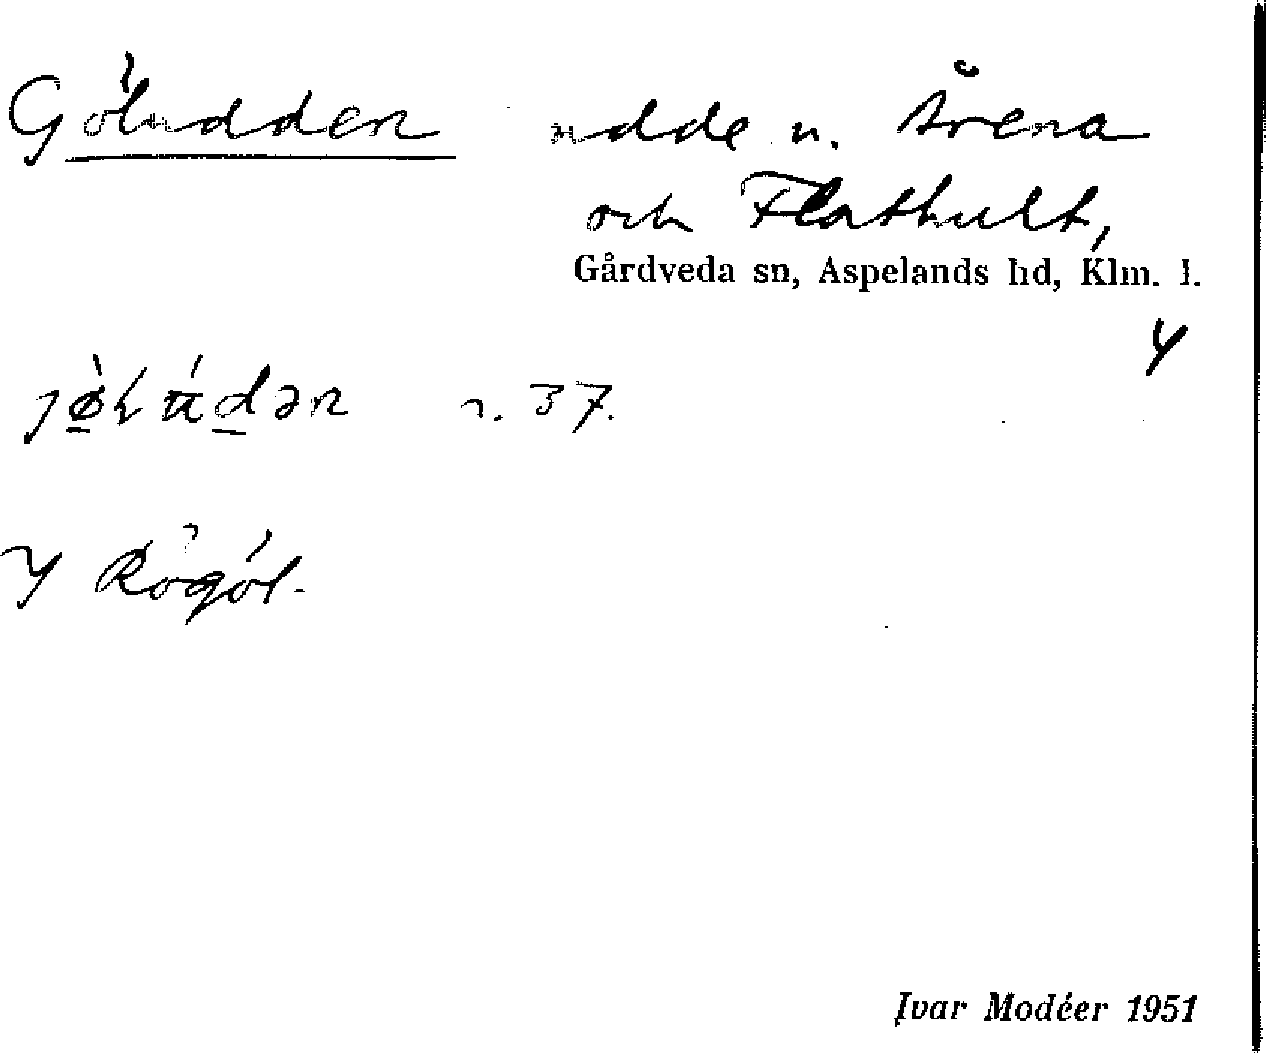 Göludden udde u. Årena
och Flathult,
Gårdveda sn, Aspelands hd, Klm. l.
4
r. 37.
I Rögöl.
Ivar Modéer 1951